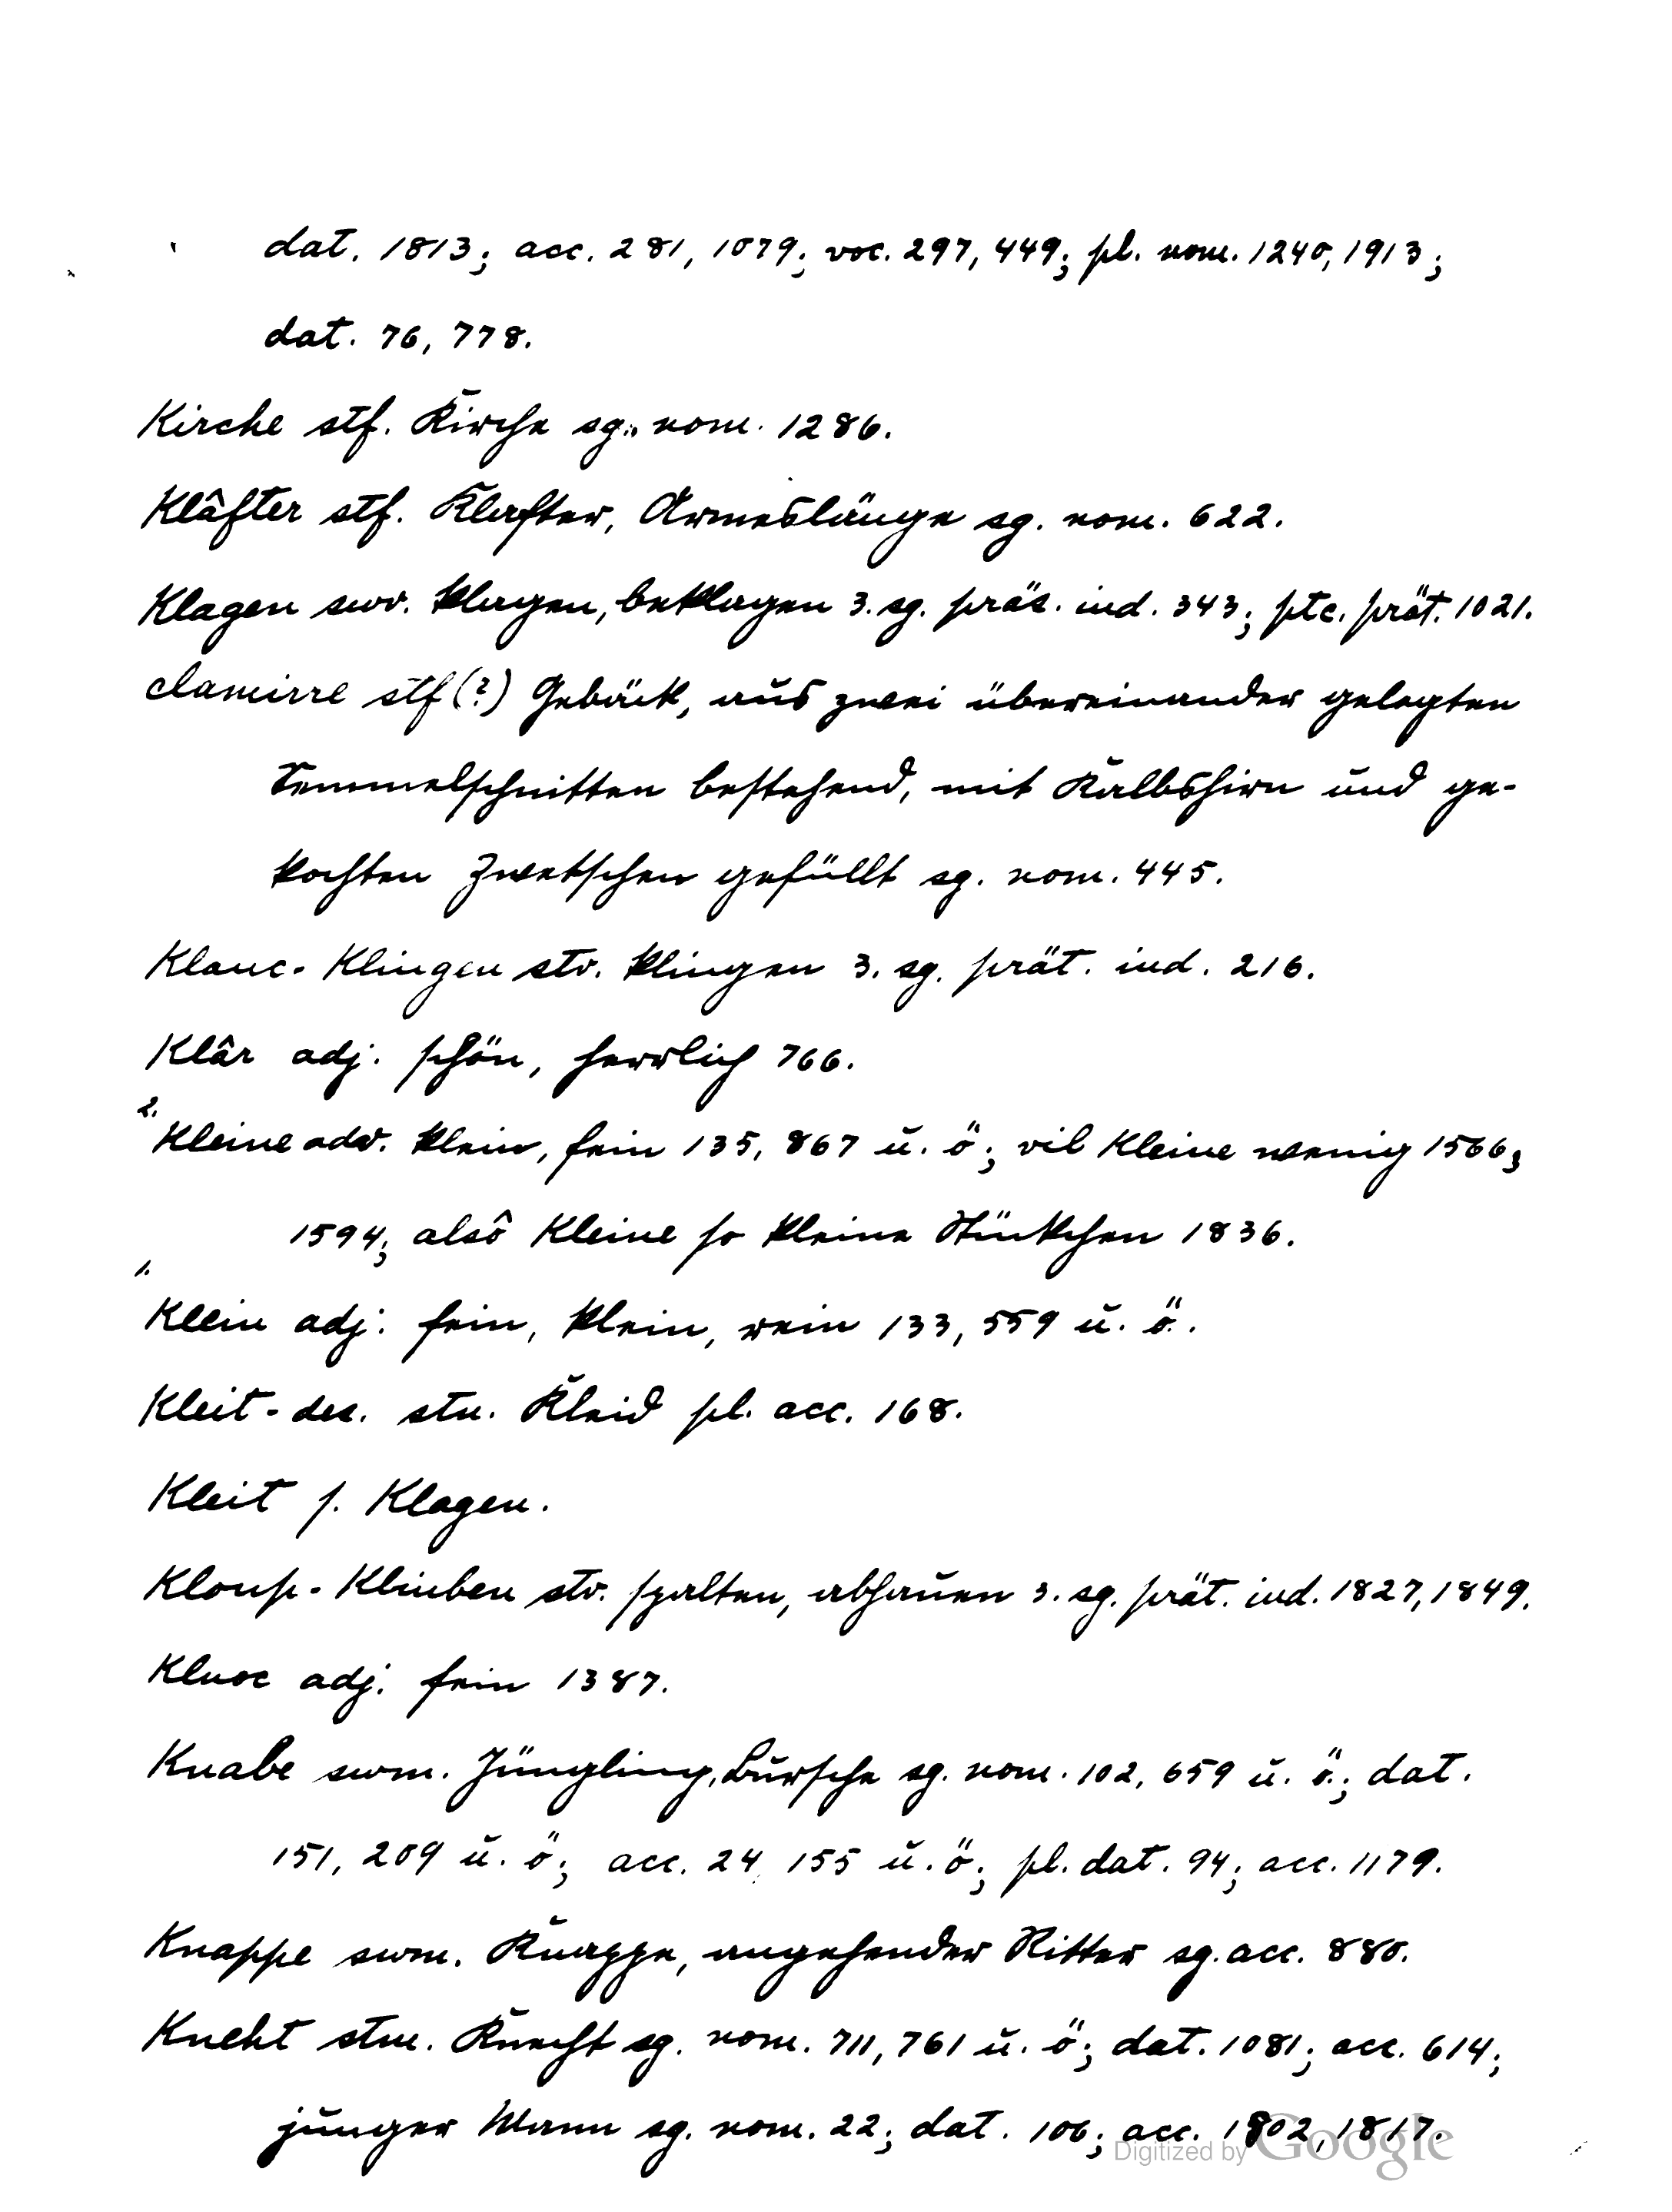 dat. 1813; acc. 281, 1079; voc. 297, 449; pl. nom. 1240, 1913;
dat. 76, 778.
Kirche stf. Kirche sg. nom. 1286.
Klâfter stf. Klafter, Armeslänge sg. nom. 622.
Klagen swv. klagen, beklagen 3. sg. präs. ind. 343; ptc. prät. 1021.
clamirre stf (?) Gebäck, aus zwei übereinander gelegten
Semmelschnitten bestehend, mit Kalbshirn und ge-
kochten Zwetschen gefüllt sg. nom. 445.
Klanc - Klingen stv. klingen 3. sg. prät. ind. 216.
Klâr adj. schön, herrlich 766.
2. Kleine adv. klein, fein 135, 867 u. ö; vil Kleine wenig 1566,
1594; alsô Kleine so kleine Stückchen 1836.
1. Klein adj. fein, klein, rein 133, 559 u. ö.
Kleit - des. stn. Kleid pl. acc. 168.
Kleit s. Klagen.
Kloup - Klieben stv. spalten, abhauen 3. sg. prät. ind. 1827, 1849.
Kluoc adj. fein 1387.
Knabe swm. Jüngling, Bursche sg. nom. 102, 659 u. ö.; dat.
151, 209 u. ö; acc. 24, 155 u. ö; pl. dat. 94; acc. 1179.
Knappe swm. Knappe, angehender Ritter sg. acc. 880.
Kneht stm. Knecht sg. nom. 711, 761 u. ö; dat. 1081; acc. 614;
junger Mann sg. nom. 22; dat. 106; acc. 1802, 1817.
Digitized by Google